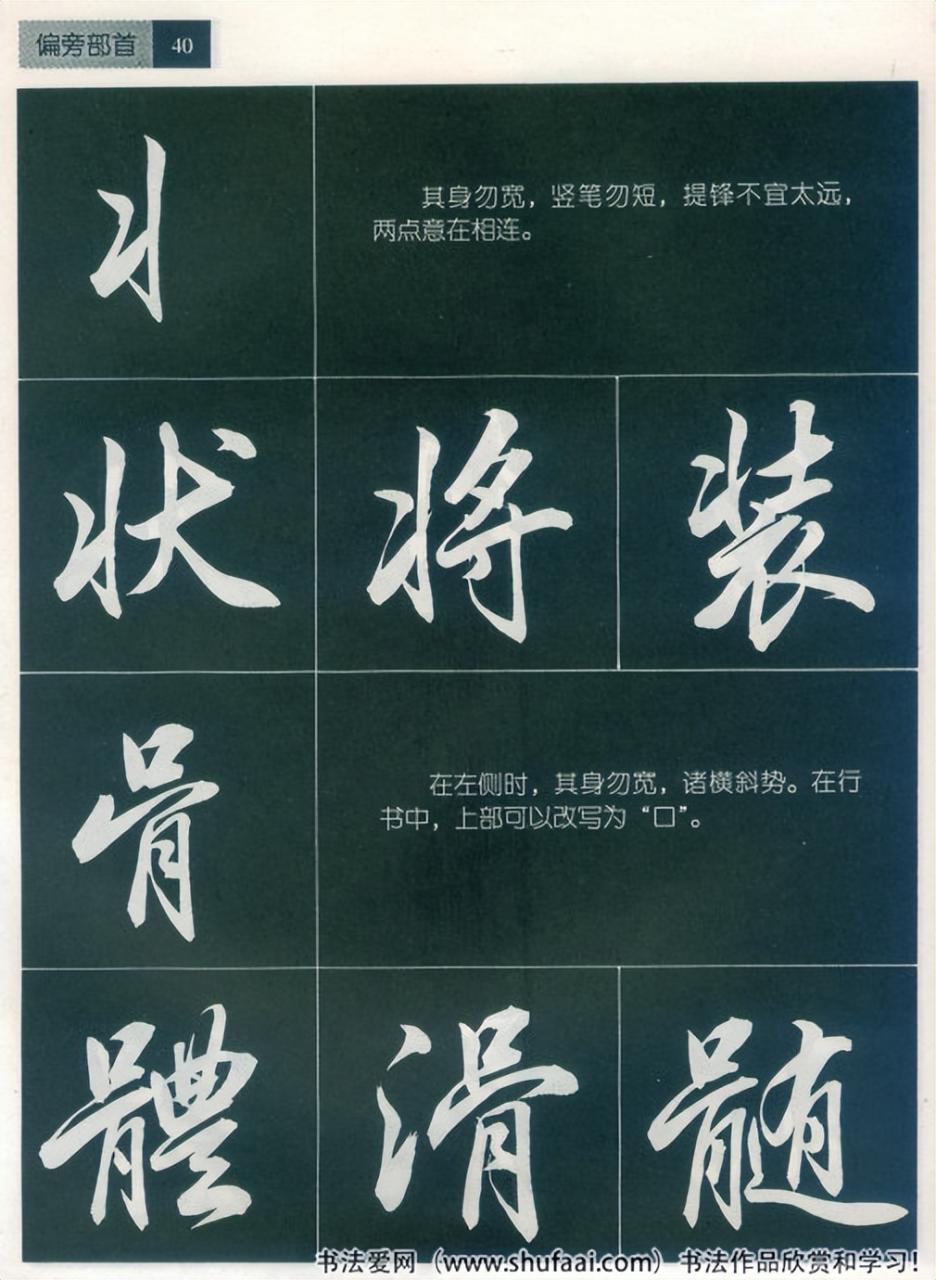 偏旁部首 40
丬
其身勿宽，竖笔勿短，提锋不宜太远，
两点意在相连。
状 将 装
骨
在左侧时，其身勿宽，诸横斜势。在行
书中，上部可以改写为“口”。
體 滑 髓
书法爱网（www.shufaai.com）书法作品欣赏和学习！